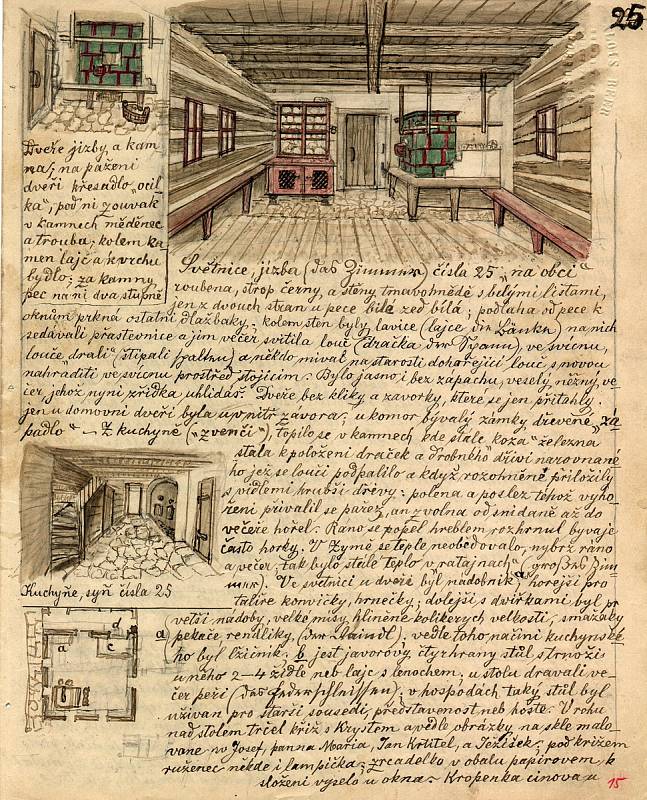 25
Dveře jizby, a kam
na; na pažení
dveří křesadlo „ocil
ka“, pod ní zouvak
v kamnech měděnec
a trouba; kolem ka
men lajč a k vrchu
bydlo; za kamny
pec na ní dva stupně
Světnice, jizba (das Zimmer) čísla 25 „na obci“
roubena, strop černý, a stěny tmavohnědé s bílými listami,
jen z dvouch stran u pece bílé zeď bílá; podlaha od pece k
oknům prkná ostatní dlažbaky; kolem stěn byly lavice (lajce die Bänke) na nich
sedávali přástevnice a jim večer svítila louč (dračka der Span), ve svícnu,
louče „drali“ (štípali) a někdo míval na starosti dohařející louč s novou
nahraditi ve svícnu prostřed stojícím. Bylo jasno i bez zapachu, veselý, něžný, ve
čer, jehož nyní zřídka uhlídáš. Dveře bez kliky a zavorky, ktere se jen přitahly.
jen u domovní dveří byla uvnitř závora; u komor bývalý zámky dřevěné „za
padlo“ – Z kuchyně („zvenčí“), topilo se v kamnech kde stale „koza“ železna
stala k položení draček a drobného dříví narovnané
ho jež se loučí podpalilo a když rozohněné přiložily
s vidlemi hrubší dřevy: polena a poslez téhož vyho
ření přivalil se pařez, an zvolna od snídaně až do
večeře hořel. Rano se popel hreblem rozhrnul byvaje
často horký. V zymě se teple neobědovalo, nybrž rano
a večer, tak bylo stale teplo v ratajnach (großes Zim
mer). Ve světnici u dveří byl nádobník hořejší pro
talíře konvičky, hrnečky; dolejší s dvířkami byl pr
Kuchyňe, syň čísla 25
větší nádoby, velké mísy hliněné kolikerých velkostí, smažáky
pekače rendlíky, (der Raindl), vedle toho načiní kuchynské
ho byl lžičník. b jest javorový, čtyrhraný stůl s trnoži s
u něho 2–4 židle neb lajc s lenochem; u stolu dravali ve
čer peří (das Federschleißen), v hospodách taký stůl byl
užívan pro starší sousedi, představenost neb hoste. V rchu
nad stolem trčel kříž s Krystem a vedle obrázky na skle malo
vane sv Josef, panna Maria, Jan Krtitel, a Ježíšek; pod křížem
ruženec někde i lampička; zrcadelko v obalu papírovem, k
složení vyselo u okna. Kropenka cinova u
a
b
c
d
a
15